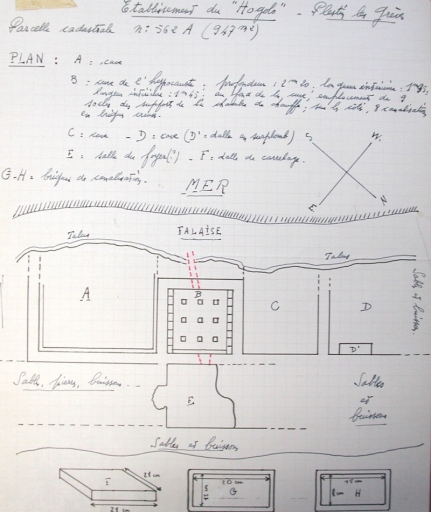 Etablissement du "Hogolo" - Plestin les Grèves
Parcelle cadastrale n° 562 A (947 m²)
PLAN : A = cave
B = cave de l'hypocauste : profondeur : 2m20 ; longueur intérieure :
largeur intérieure : 1m45 : en face de la cave, emplacement de 9
socles des supports de la chambre de chauffe ; sur le côté, 8 canalisations
en briques creuses.
C = cave - D = cave (D' = dalle en surplomb)
E = salle du foyer (?) - F = dalle de carrelage.
G-H = briques de canalisation.
S.
W.
E
N
MER
FALAISE
Talus
Talus
Sables et buissons
A
B
C
D
D'
E
Sables, pierres, buissons
Sables
et
buissons
Sables et buissons
28 cm
28 cm
20 cm
G
H
8 cm